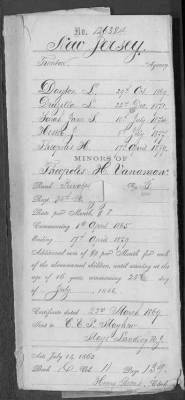 No. 126384
New Jersey.
Trenton Agency
Dayton L. 29th Oct. 1869
Drusilla S. 22nd Dec. 1871
Sarah Jane S. 10th July 1874
Henry S. 5th July 1877
Theopilus H. 17th April 1879
MINORS OF
Theopilus H. Vanaman
Rank Private Co.
Regt. 25th N.J.
Rate per Month, $ 8
Commencing 1st April 1865
Ending 17th April 1879
Additional sum of $2 per Month for each
of the abovenamed children, until arriving at the
age of 16 years, commencing 25th
of July, 1866.
Certificate dated 23rd March 1869
Sent to C. E. P. Mayhew
Mays Landing N.J.
Act July 14, 1862
Book Vol. Page
Clerk